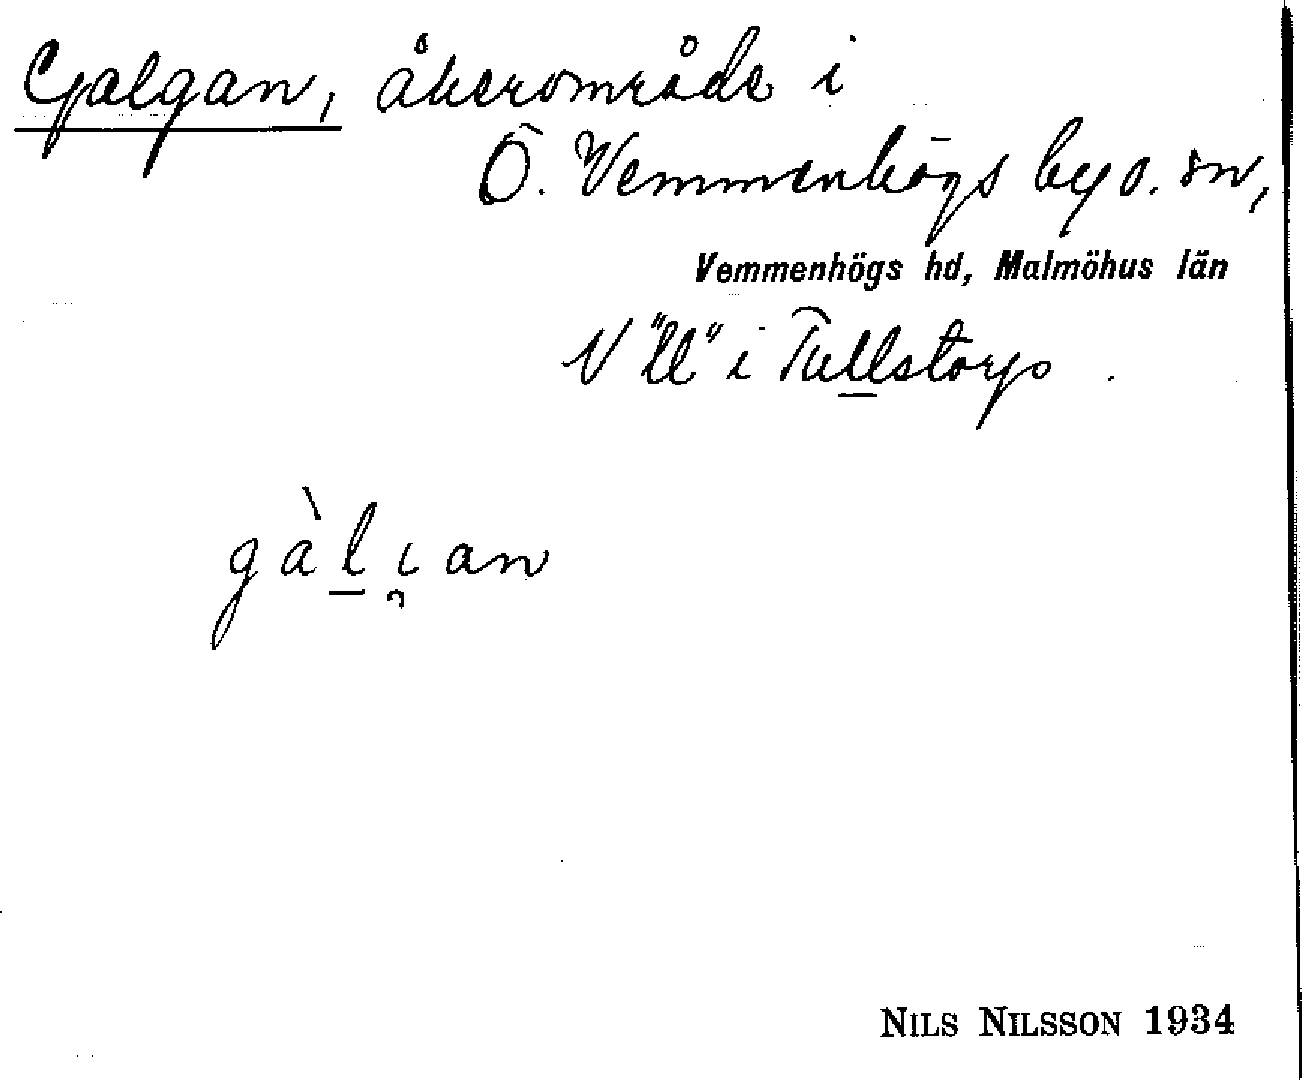 Galgan, åkerområde i
Ö. Vemmenhögs by o. sn,
Vemmenhögs hd, Malmöhus län
V "ll" i Tullstorp.
gàḻı̯an
NILS NILSSON 1934